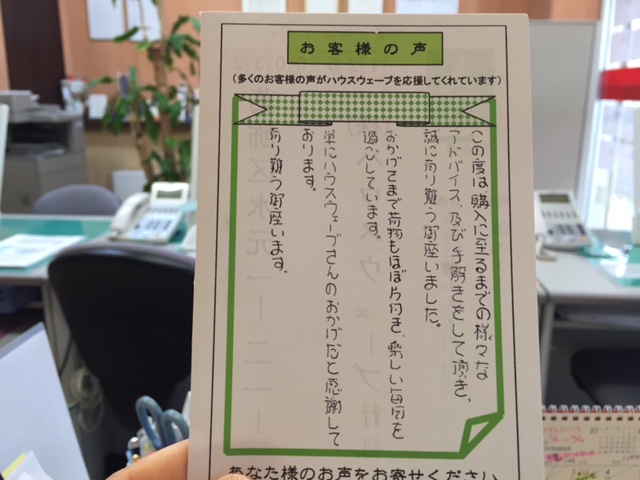 お客様の声
(多くのお客様の声がハウスウェーブを応援してくれています)
この度は購入に至るまでの様々な
アドバイス、及び手解きをして頂き、
誠に有り難う御座いました。
おかげさまで荷物もほぼ片付き、楽しい毎日を
過ごしています。
単にハウスウェーブさんのおかげだと感謝して
おります。
有り難う御座います。
あなた様のお声をお寄せください